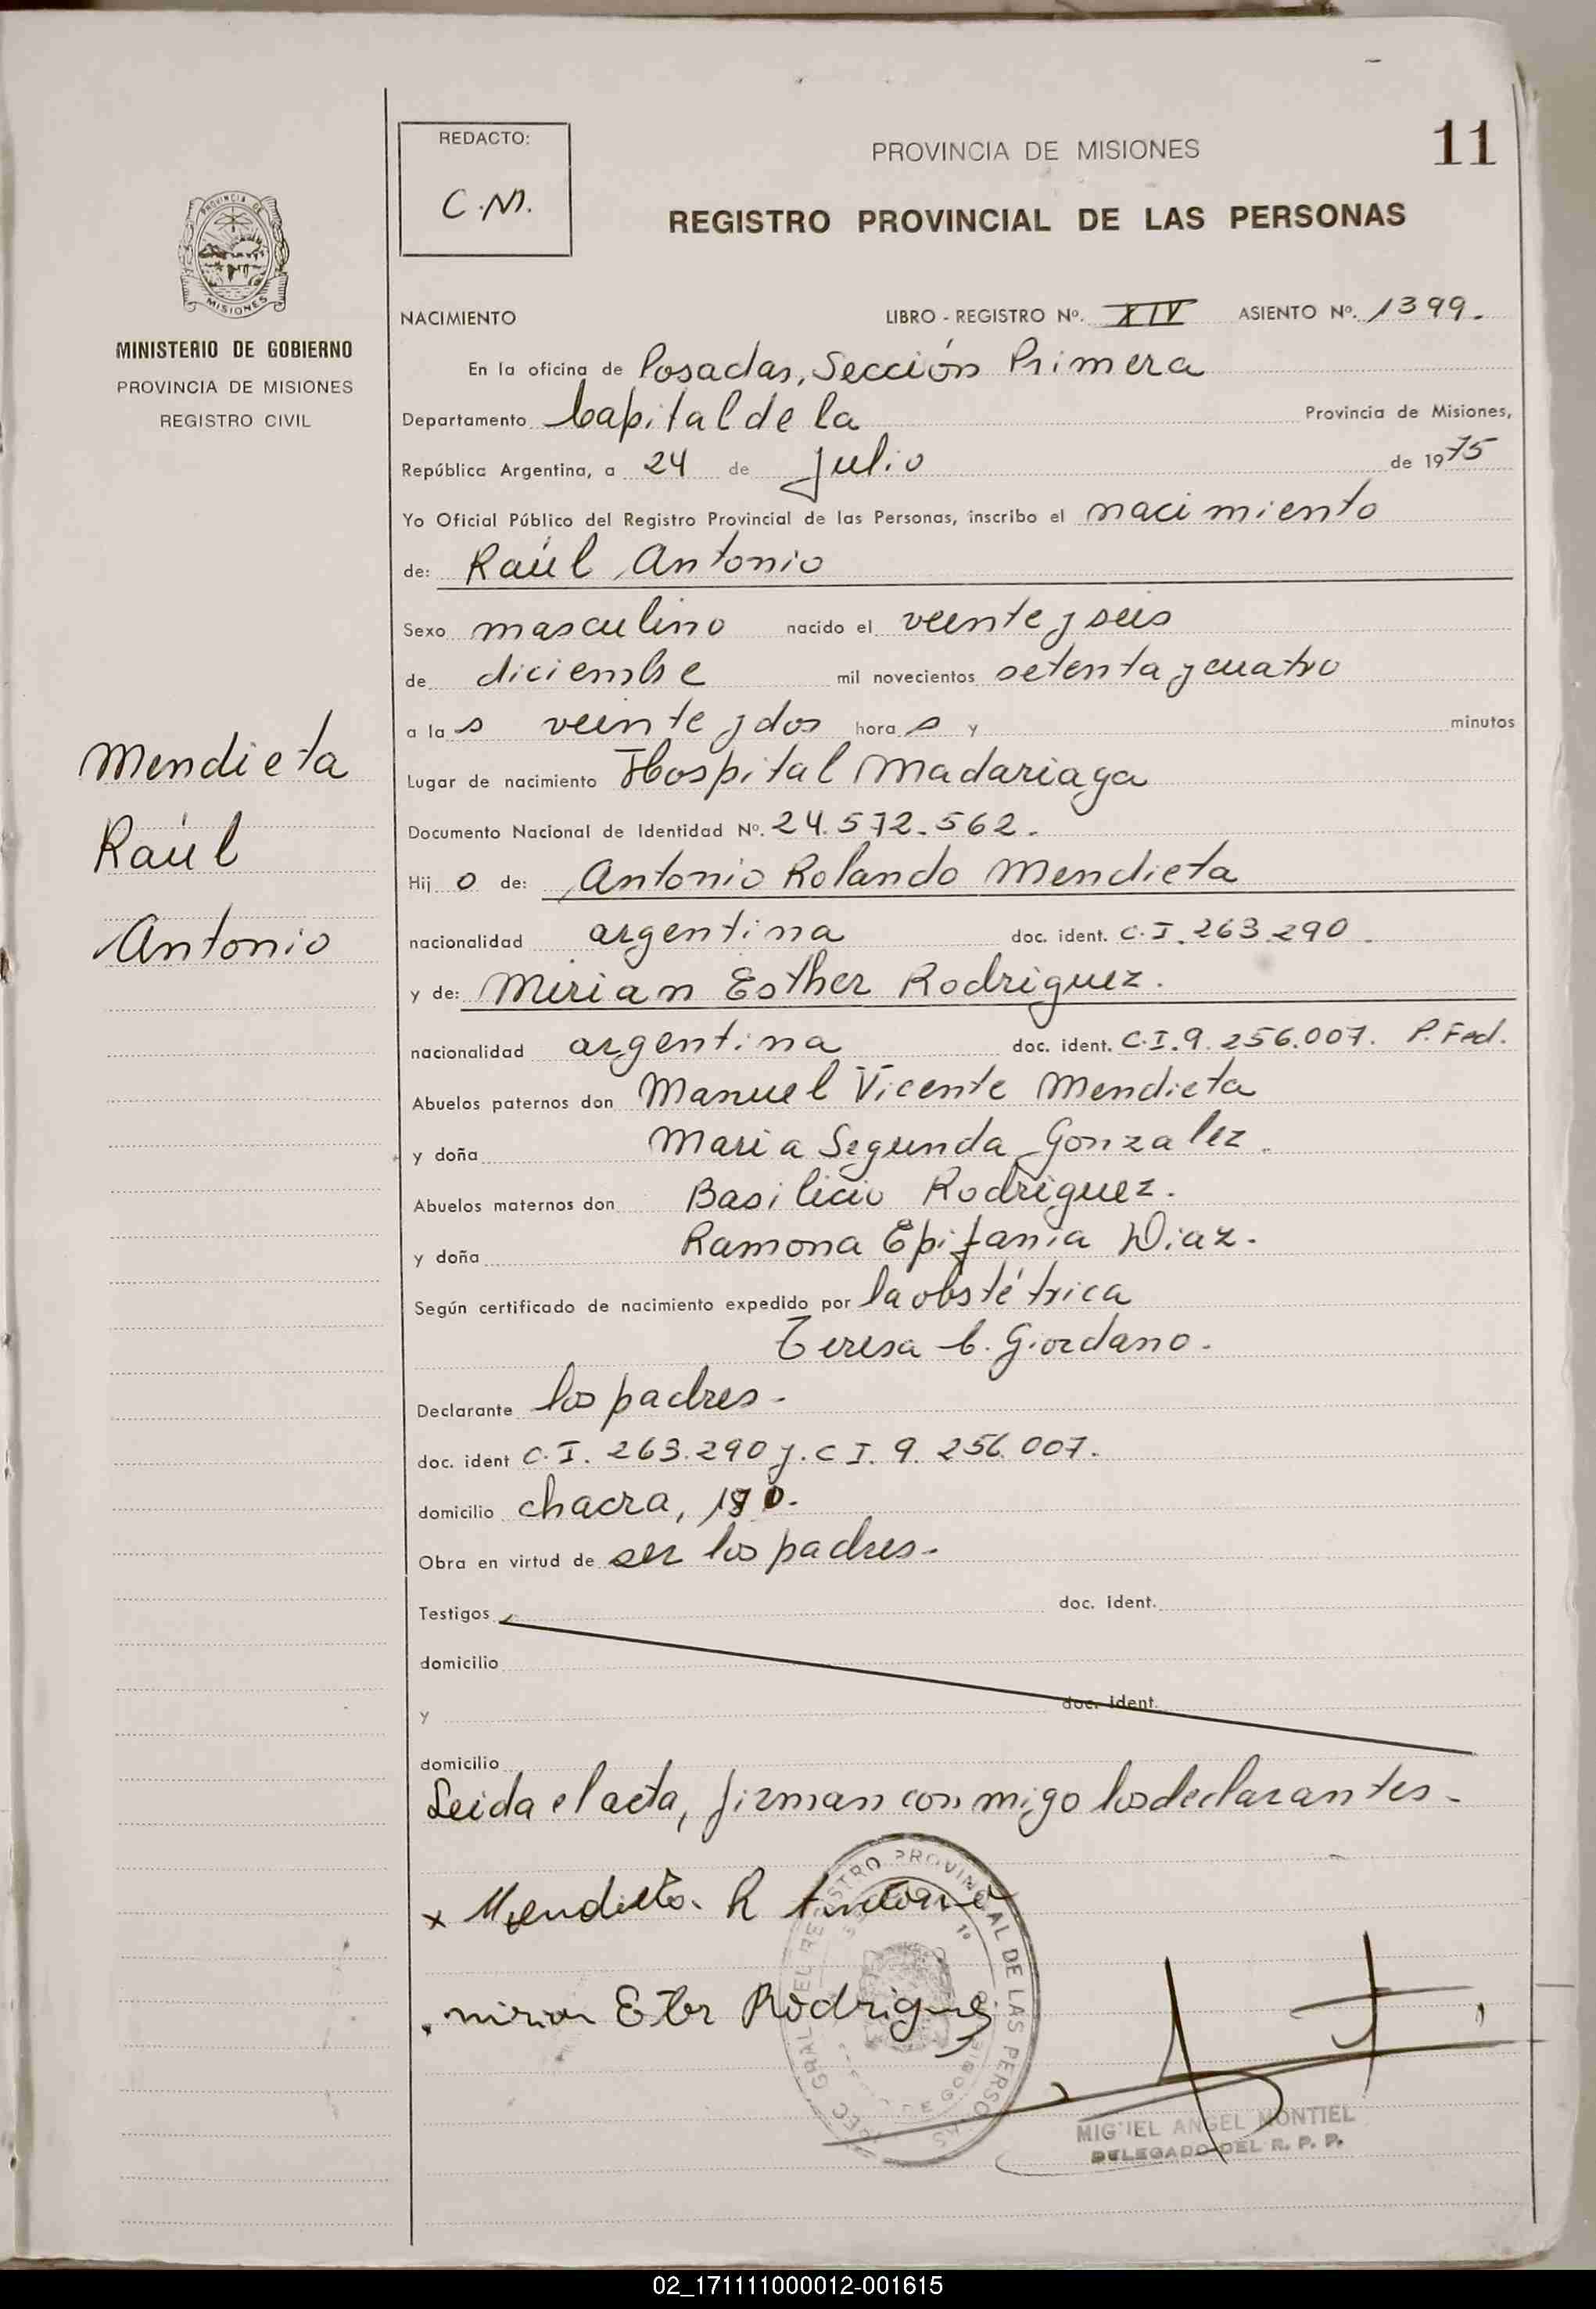 11
REDACTO:
C.M.
PROVINCIA DE MISIONES
REGISTRO PROVINCIAL DE LAS PERSONAS
PROVINCIA DE
MISIONES
MINISTERIO DE GOBIERNO
PROVINCIA DE MISIONES
REGISTRO CIVIL
NACIMIENTO LIBRO - REGISTRO Nº. XIV ASIENTO Nº. 1399.
En la oficina de Posadas, Sección Primera
Departamento Capital de la Provincia de Misiones,
República Argentina, a 24 de Julio de 1975
Yo Oficial Público del Registro Provincial de las Personas, inscribo el nacimiento
de: Raúl Antonio
Sexo masculino nacido el veinte y seis
de diciembre mil novecientos setenta y cuatro
a las veinte y dos horas y minutos
Mendieta
Raúl
Antonio
Lugar de nacimiento Hospital Madariaga
Documento Nacional de Identidad Nº. 24.572.562.
Hijo de: Antonio Rolando Mendieta
nacionalidad argentina doc. ident. C.I. 263.290.
y de: Mirian Esther Rodriguez.
nacionalidad argentina doc. ident. C.I. 9.256.007. P. Fed.
Abuelos paternos don Manuel Vicente Mendieta
y doña Maria Segunda Gonzalez.
Abuelos maternos don Basilicio Rodriguez.
y doña Ramona Epifania Diaz.
Según certificado de nacimiento expedido por la obstétrica
Teresa C. Giordano.
Declarante los padres.
doc. ident C.I. 263.290 y. C I. 9.256.007.
domicilio chacra,
Obra en virtud de ser los padres.
Testigos doc. ident.
domicilio
y doc. ident.
domicilio
Leida el acta, firman conmigo los declarantes.
x Mendieta. R Antonio
Rodrigue
MIGUEL ANGEL MONTIEL
DELEGADO DEL R. P. P.
02_171111000012-001615